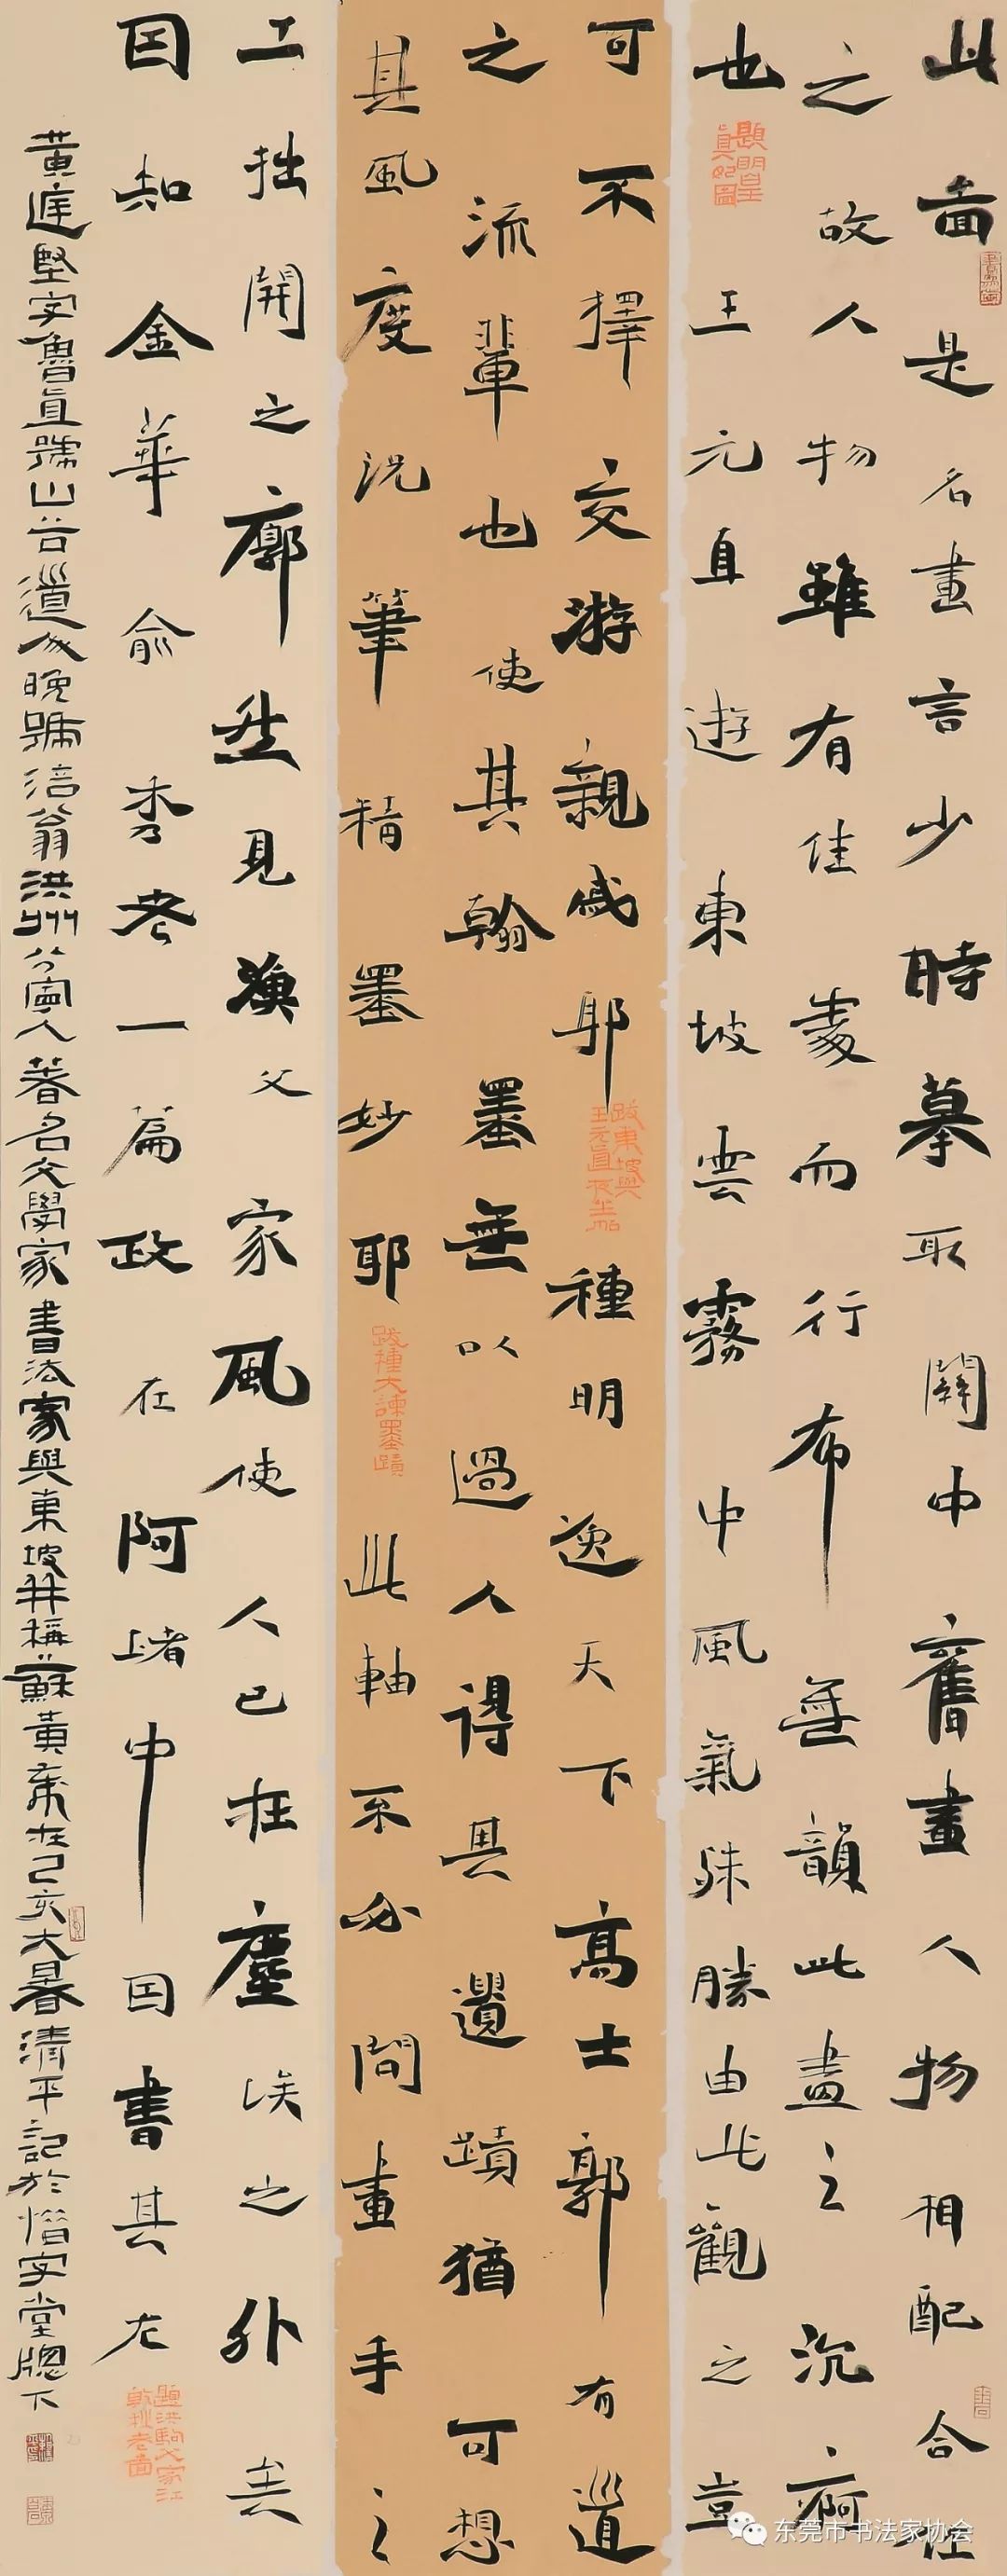 此啚是名畫言少時摹取關中舊畫人物相配合任
之故人物雖有佳處而行布無韻此盡之沉痾
也
題明皇
真妃圖
王元直遊東坡雲霧中風氣殊勝由此觀之豈
可不擇交游親戚耶
跋東坡與
王元直夜坐帖
種明逸天下高士郭有道
之流輩也使其翰墨無以過人得其遺蹟猶可想
其風度況筆精墨妙耶
跋種大諫墨蹟
此軸不必問畫手之
工拙開之廓然見漁父家風使人已在塵埃之外矣
囙知金華俞秀老一篇政在阿堵中囙書其左
題洪駒父家江
干秋老啚
黃庭堅字魯直號山谷道人晚號涪翁洪州分寧人著名文學家書法家與東坡并稱蘇黃歲在己亥大暑清平記於惜字堂牕下
东莞市书法家协会